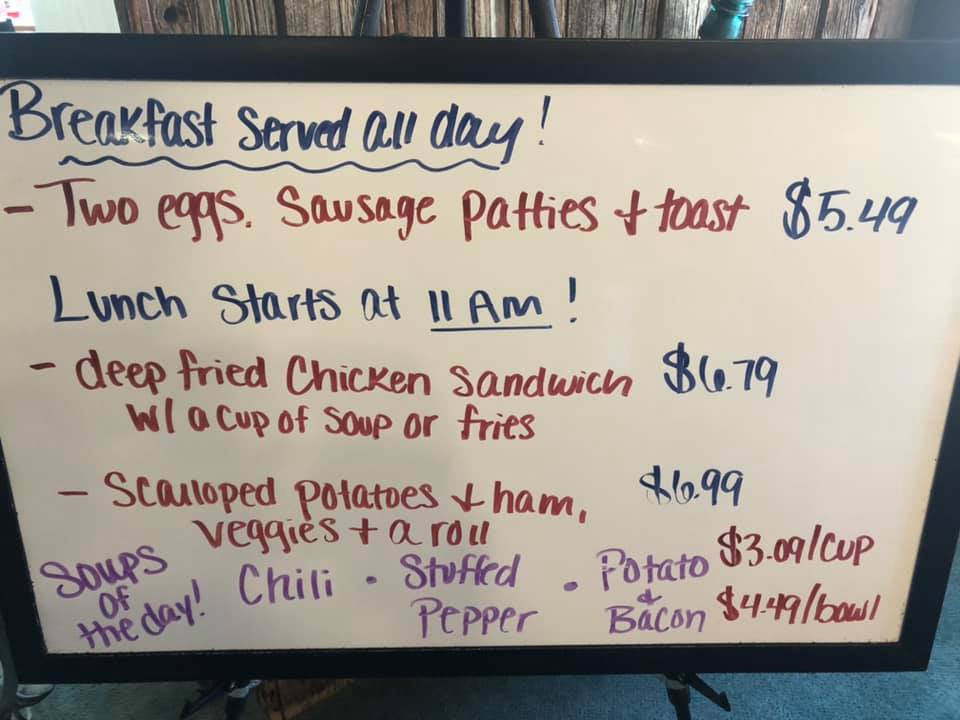 Breakfast Served all day!
- Two eggs. Sausage Patties + toast $5.49
Lunch Starts at 11 Am!
- deep fried Chicken Sandwich $6.79
w/ a cup of soup or fries
- Scalloped potatoes + ham, $6.99
veggies + a roll
Soups of the day! Chili • Stuffed Pepper • Potato & Bacon
$3.09/cup
$4.49/bowl